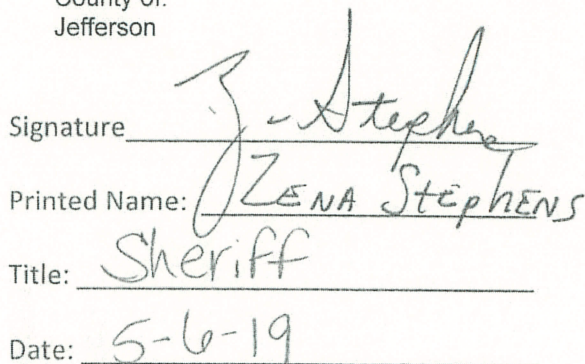 County of:
Jefferson
Signature Z-Stephens
Printed Name: ZENA StEphENS
Title: Sheriff
Date: 5-6-19